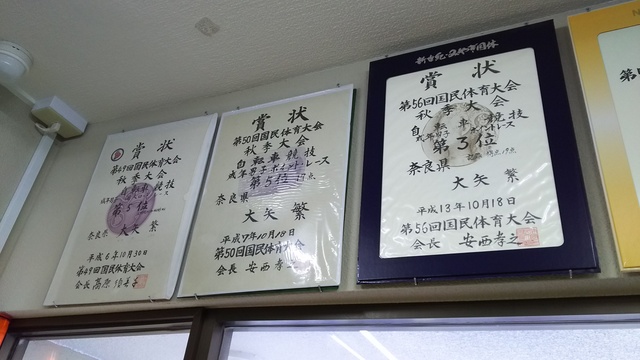 賞状
第49回国民体育大会
秋季大会
自転車競技
第5位
奈良県 大矢 繁
平成6年10月30日
第49回国民体育大会
会長
賞状
第50回国民体育大会
秋季大会
自転車競技
成年男子ポイントレース
第5位
奈良県
大矢 繁
平成7年10月18日
第50回国民体育大会
会長 安西孝之
賞状
第56回国民体育大会
秋季大会
自転車競技
ポイントレース
第3位
奈良県
大矢 繁
平成13年10月18日
第56回国民体育大会
会長 安西孝之